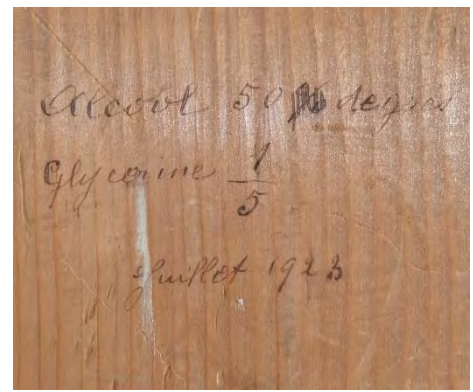 Alcool 50 degrés
Glycerine 1/5
Juillet 1923